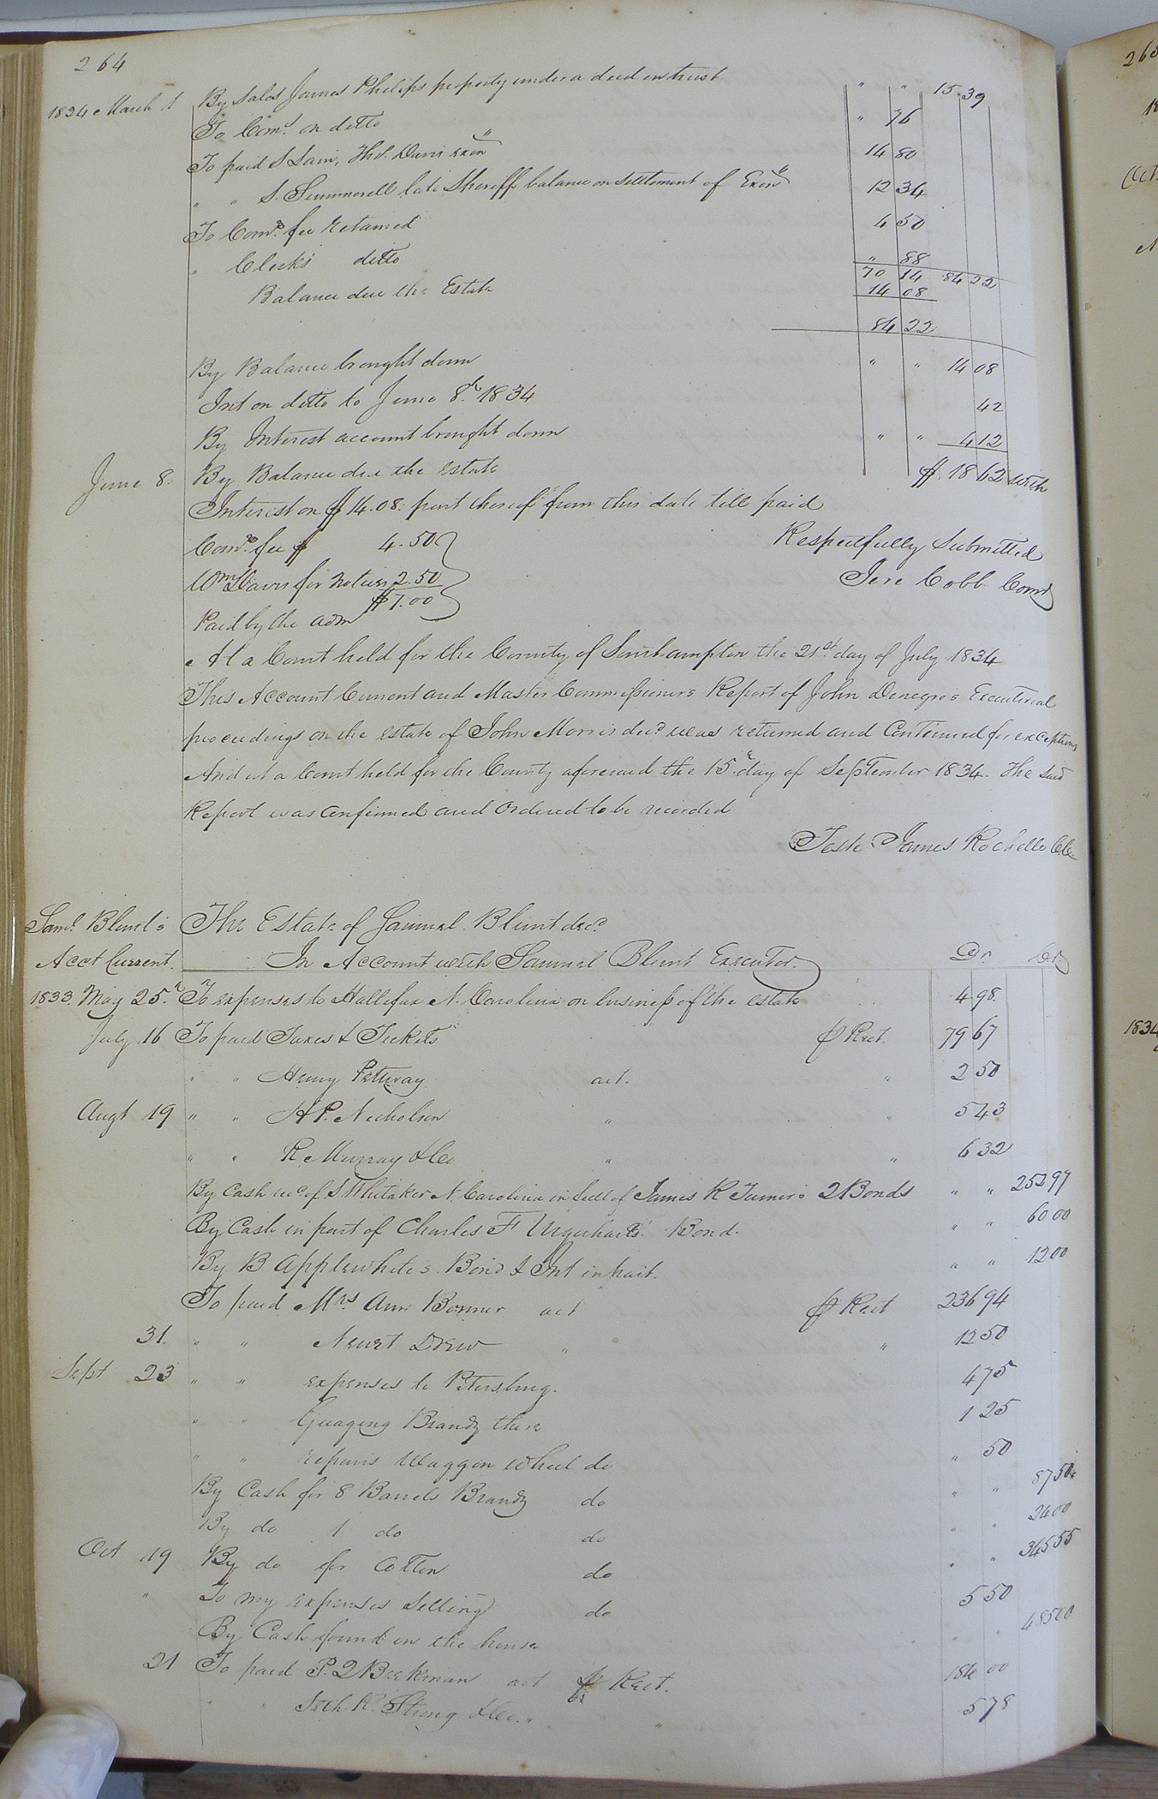 264
1834 March 1 By Sales James Philips property under a deed in trust " " 15.39
To Coms. on ditto " 76
To paid S Lain, Thos. Davis Exon 14 80
" " S. Summerell late Sheriff balance on settlement of Exons 12 34
To Comrs. fee retained 4 50
" Clerks ditto " 88
70 14 84 22
Balance due the Estate 14 08
84 22
By Balance brought down " " 14 08
Int on ditto to June 8th 1834 42
By Interest account brought down " " 4 12
June 8. By Balance due the estate $ 18 62 with
Interest on $14.08. part thereof from this date till paid
Comrs. fee $ 4.50
Wm Davis for notices 2.50
$7.00
Paid by the adm
Respectfully Submitted
Jere Cobb Comr
At a Court held for the County of Southampton the 21st day of July 1834
This Account Current and Master Commissioners Report of John Denegre's Executorial
proceedings on the estate of John Morris decd was returned and Continued for exceptions
And at a Court held for the County aforesaid the 15th day of September 1834. The said
Report was confirmed and Ordered to be recorded
Teste James Rochelle Clk
Saml. Blunt's The Estate of Samuel Blunt decd.
Acct Current. In Account with Samuel Blunt Executor. Dr Cr
1833 May 25th To expenses to Hallifax N. Carolina on business of the estate 4 98.
July 16 To paid Taxes & Tickets ⅌ Rect. 79 67
" " Henry Pettway act. " 2 50
Augt 19 " " H P. Nicholson " " 5 43
" " R Murray & Co " " 6 32
By Cash recd. of S Whitaker N. Carolina in full of James R Turner's 2 Bonds " " 253 97
By Cash in part of Charles F Urquhart's Bond. " " 60 00
By B Applewhite's Bond & Int in part. " " 12 00
To paid Mrs Ann Bonner act ⅌ Rect 236 94
31. " " Newit Drew " " 12 50
Sept 23 " " expenses to Petersburg. 4 75
" " Guaging Brandy there 1 25
" " repairs Waggon wheel do " 50
By Cash for 8 Barrels Brandy do " " 87 50
By do 1 do do " " 24 00
Oct 19 By do for Cotton do " " 345 55
" To my expenses Selling do 5 50
By Cash found in the house " " 485 00
21 To paid P. 2 Beekman act ⅌ Rect. 184 00
" " Seth K. Strong & Co. " " 5 78